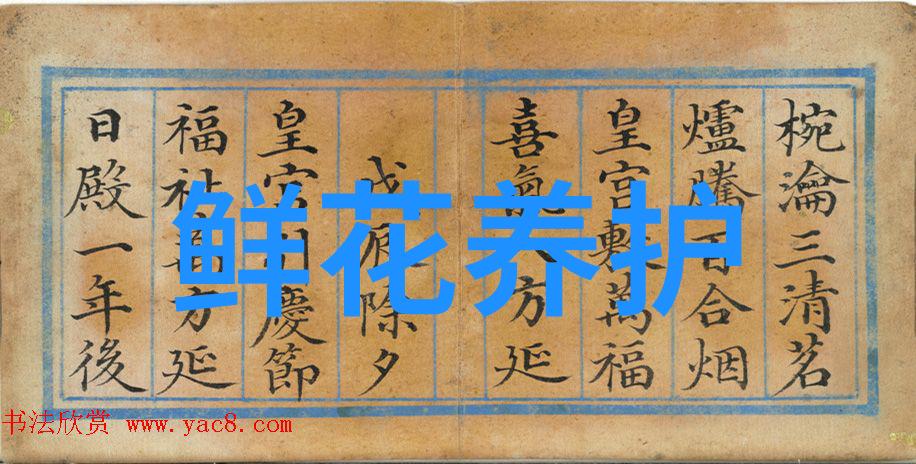 椀瀹三清茗
爐騰百合烟
皇宫敷萬福
喜氣八方延
戊辰除夕
皇宫慶節
福祉萬方延
日殿一年後
鲜花养护
书法欣赏 www.yac8.com